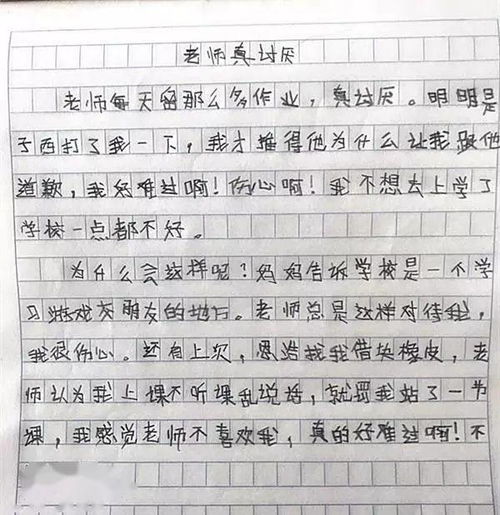 老师真讨厌
老师每天留那么多作业，真讨厌。明明是
子西打了我一下，我才推得他为什么让我跟他
道歉，我好难过啊！伤心啊！我不想去上学了
学校一点都不好。
为什么会这样呢？妈妈告诉学校是一个学
习游戏交朋友的地方。老师总是这样对待我，
我很伤心。还有上次，思浩找我借块橡皮，老
师认为我上课不听课乱说话，就罚我站了一节
课，我感觉老师不喜欢我，真的好难过啊！不